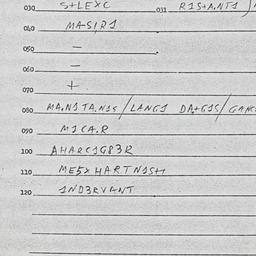 030 S+LEXC 031 R1S+A.NT1
040 MA-S1,R1
050 —
060 —
070 +
080 MA.N1 TA.N1S / LANG1 DA+G1S / GANG
090 M1CA.R
100 AHARC1G83R
110 ME5XHARTN1S+1
120 1ND3RVANT